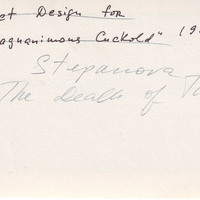 et Design for
agnanimous Cuckold" (19
Stepanova
The Death of T